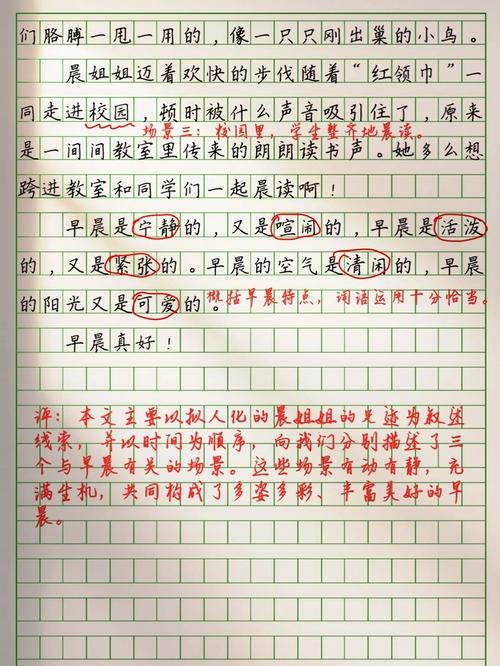 们胳膊一甩一甩的，像一只只刚出巢的小鸟。
晨姐姐迈着欢快的步伐随着“红领巾”一
同走进校园，顿时被什么声音吸引住了，原来
场景三：校园里，学生整齐地晨读。
是一间间教室里传来的朗朗读书声。她多么想
跨进教室和同学们一起晨读啊！
早晨是宁静的，又是喧闹的，早晨是活泼
的，又是紧张的。早晨的空气是清闲的，早晨
的阳光又是可爱的。
概括早晨特点，词语运用十分恰当。
早晨真好！
评：本文主要以拟人化的晨姐姐的足迹为叙述
线索，并以时间为顺序，向我们分别描述了三
个与早晨有关的场景。这些场景有动有静，充
满生机，共同构成了多姿多彩、丰富美好的早
晨。